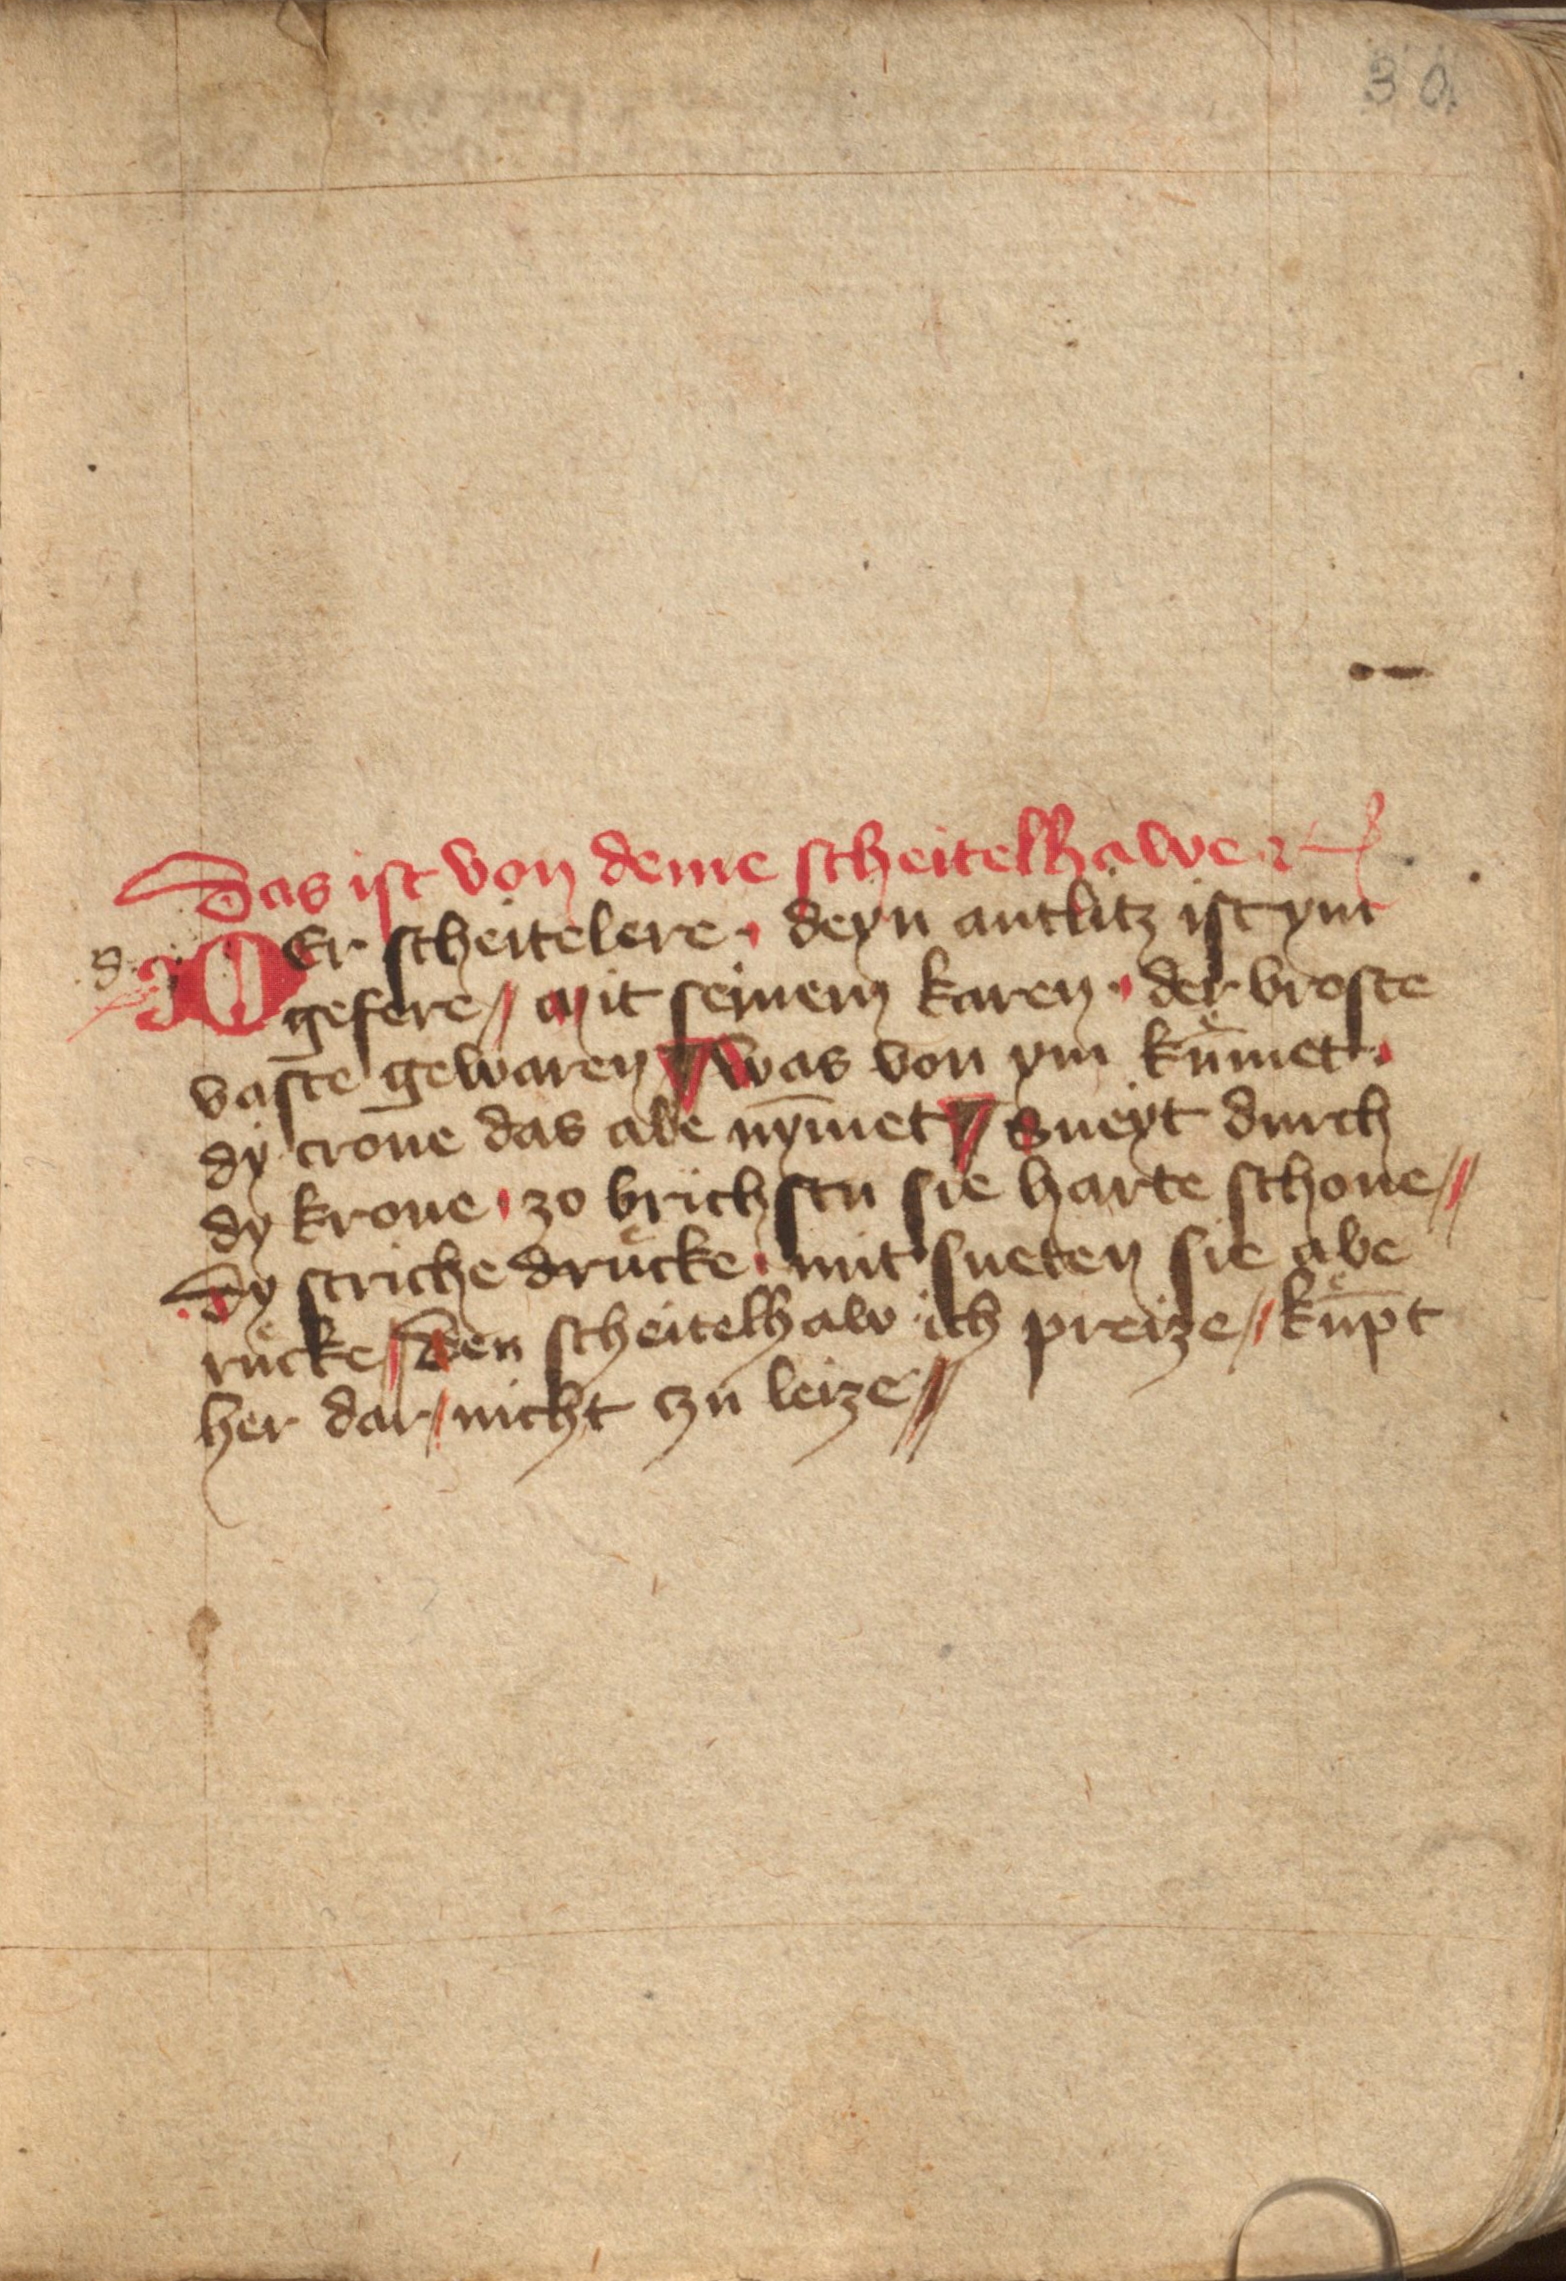 30
Das ist von deme scheitelhawe ꝛc
d
DEr scheitelere · deyn antlitz ist ym
gefere // Mit seinem karen · der broste
vaste gewaren // Was von ym kuͤm̄et ·
dy crone das abe nym̄et // Sneyt durch
dy krone · zo brichstu sie harte schone //
Dy striche druͤcke · mit sneten sie abe
ruͤcke // Den scheitelhaw ich preize // kuͤm̄pt
her dar // nicht czu leize //